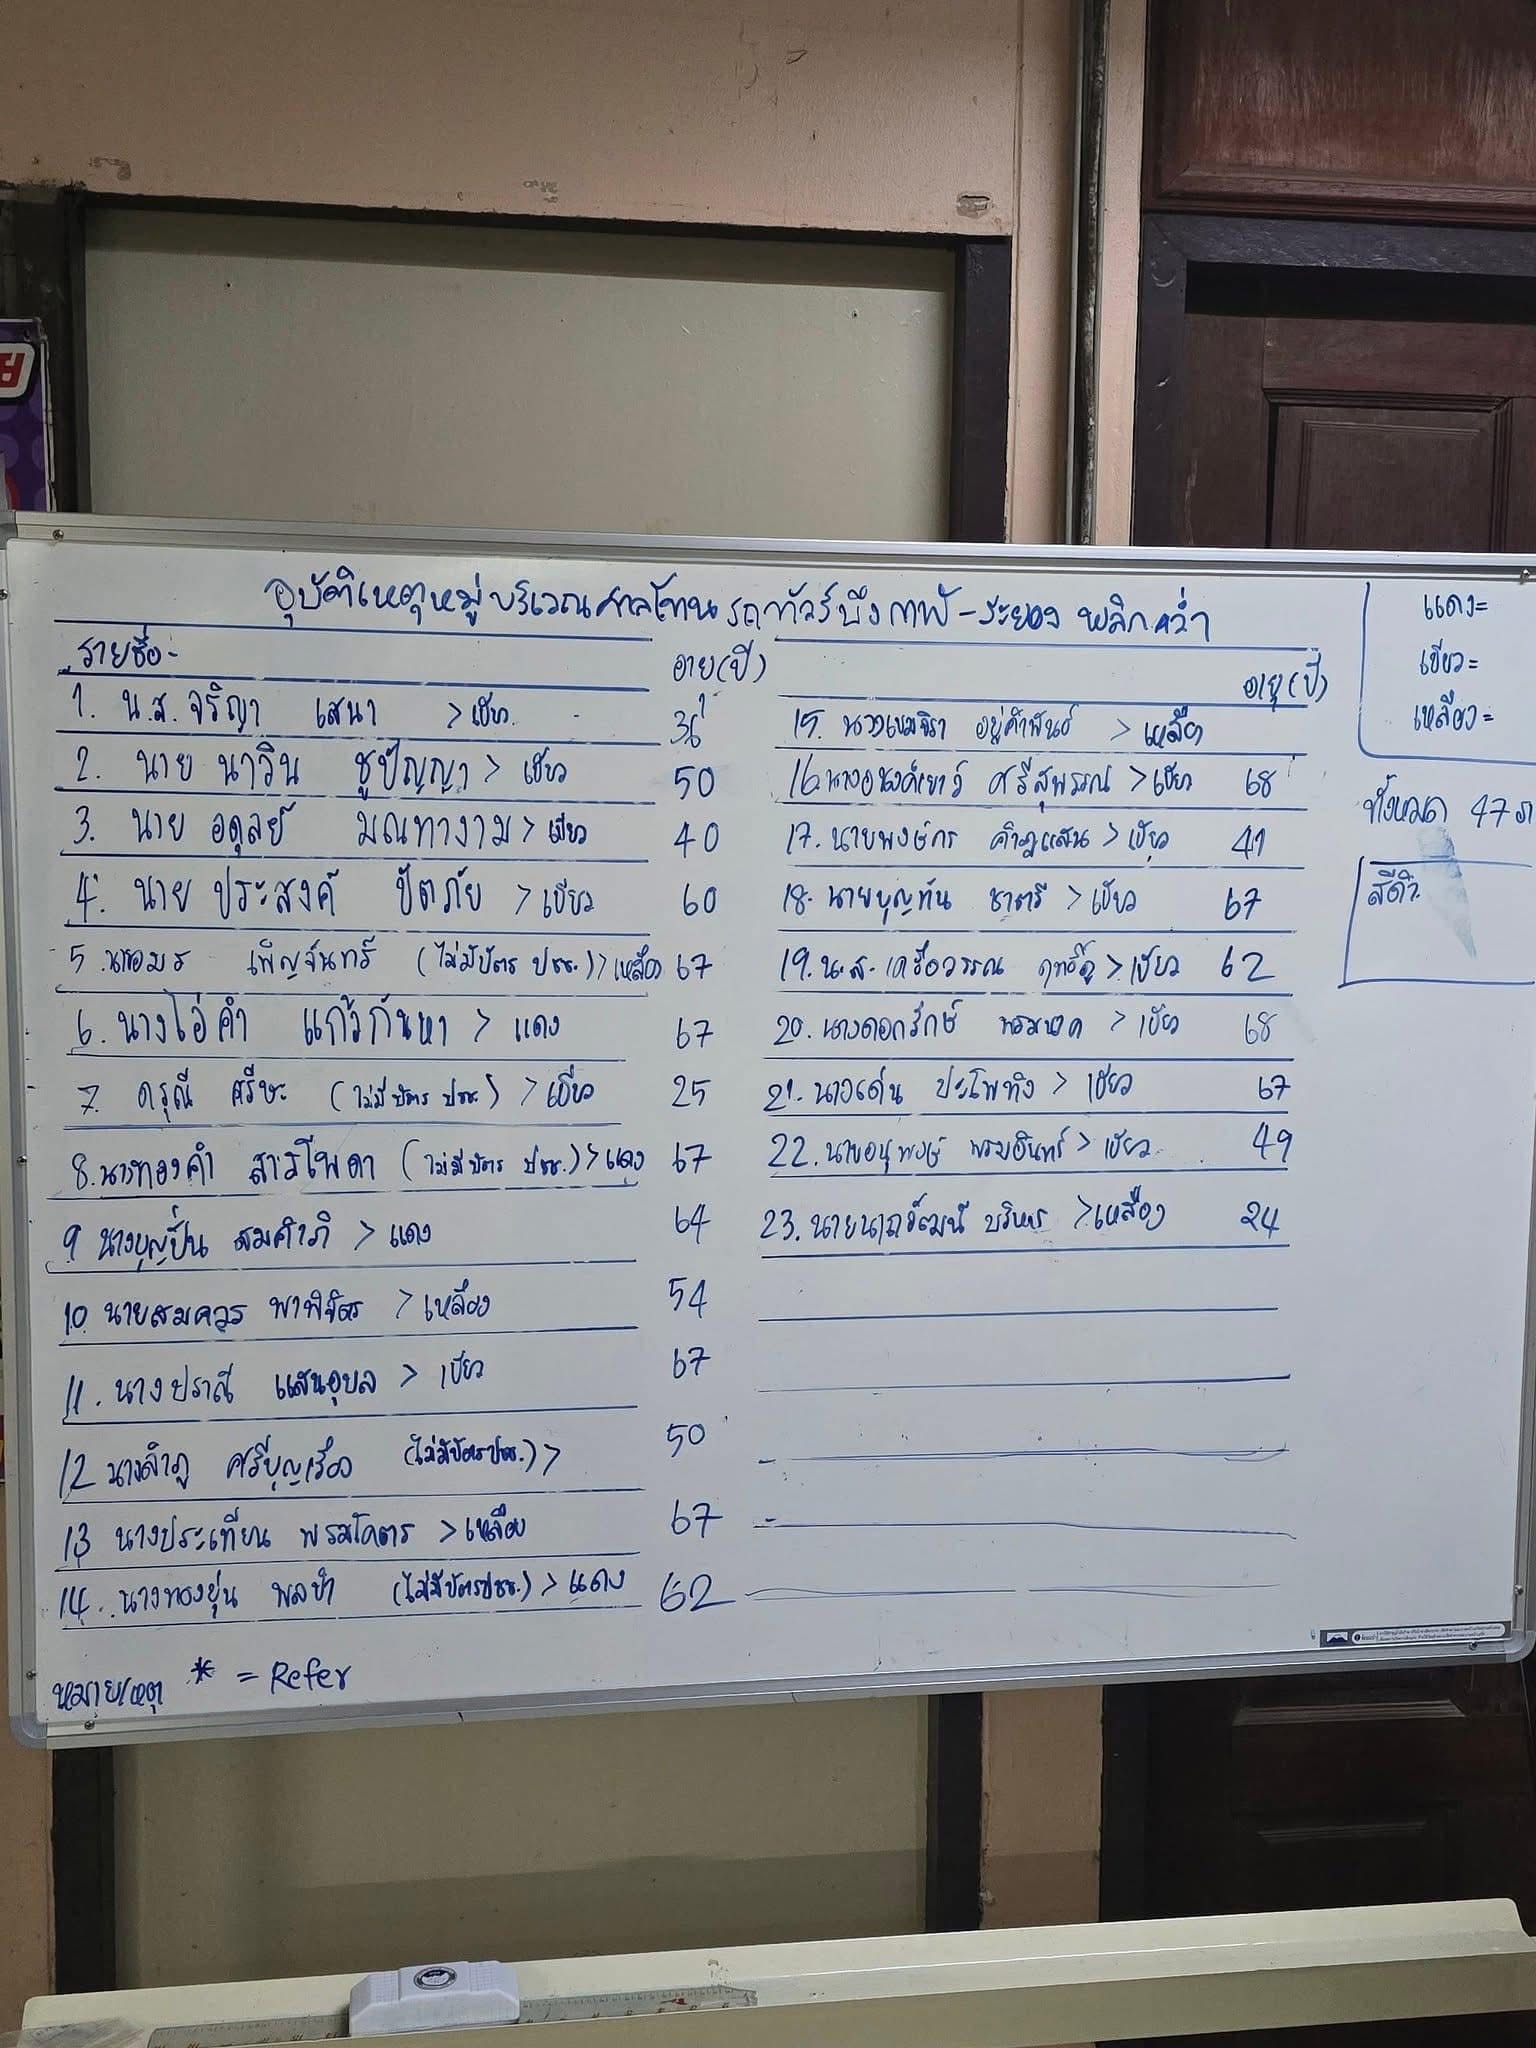 อุบัติเหตุหมู่บริเวณศาลโทน รถทัวร์บึงกาฬ - ระยอง พลิกคว่ำ
รายชื่อ:-
อายุ(ปี)
1. น.ส. จริญา เสนา > เขียว
2. นาย นาวิน ชูปัญญา > เขียว 50
3. นาย อดุลย์ มณฑางาม > เขียว 40
4. นาย ประสงค์ ปัตภัย > เขียว 60
5. นายอมร เพ็ญจันทร์ (ไม่มีบัตร ปชช.) > เหลือง 67
6. นางไอ่คำ แก้วกันหา > แดง 67
7. ดรุณี ศรีษะ (ไม่มีบัตร ปชช.) > เขียว 25
8. นางทองคำ สารโพคา (ไม่มีบัตร ปชช.) > แดง 67
9 นางบุญปั่น สมคำภี > แดง 64
10 นายสมควร พาพิจิตร > เหลือง 54
11. นางปราณี แสนอุบล > เขียว 67
12 นางลำภู ศรีบุญเรือง (ไม่มีบัตรปชช.) > 50
13 นางประเทียน พรมโคตร > เหลือง 67
14. นางทองขุ่น พลขำ (ไม่มีบัตรปชช.) > แดง 62
หมายเหตุ * = Refer
อายุ(ปี)
15. > เหลือง
16. ศรีสุพรรณ > เขียว 68
17. นายพงษ์กร > เขียว 41
18. นายบุญทัน ชาตรี > เขียว 67
19. น.ส. เครือวรรณ > เขียว 62
20. นางดอกรักษ์ > เขียว 68
21. นางเด่น ปะโพทิง > เขียว 67
22. นายอนุพงษ์ พรมอินทร์ > เขียว 49
23. > เหลือง 24
แดง=
เขียว=
เหลือง=
ทั้งหมด 47
สีดำ: